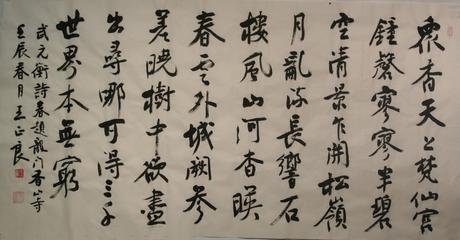 眾香天上梵仙宮
鍾磬寥寥半碧
空清景乍開松嶺
月亂流長響石
樓風山河杳暎
春雲外城闕參
差曉樹中欲盡
出尋哪可得三千
世界本無窮
武元衡詩春題龍門香山寺
壬辰春月王正良